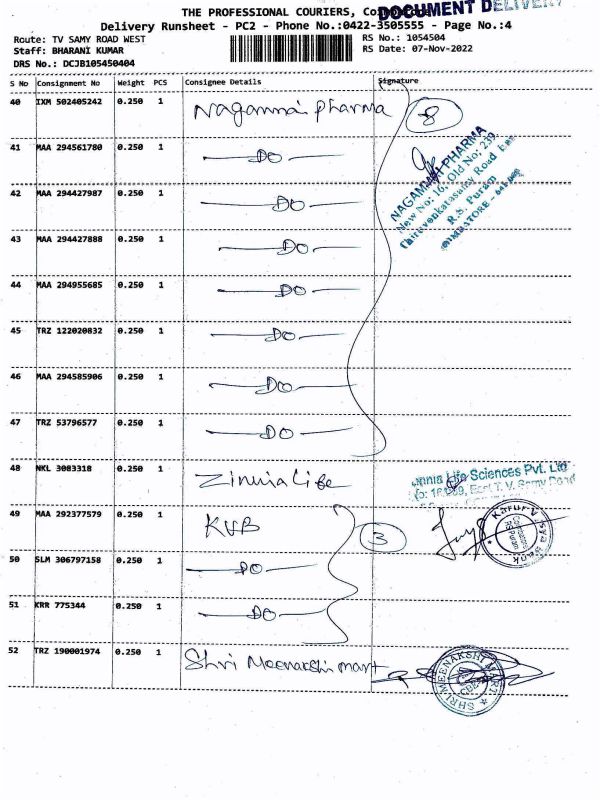 THE PROFESSIONAL COURIERS,
DOCUMENT DELIVERY
Delivery Runsheet - PC2 - Phone No.:0422-3505555 - Page No.:4
Route: TV SAMY ROAD WEST
RS No.: 1054504
Staff: BHARANI KUMAR
RS Date: 07-Nov-2022
DRS No.: DCJB105450404
S No Consignment No Weight PCS Consignee Details Signature
40 IXM 502405242 0.250 1 Nagammai Pharma 8
41 MAA 294561780 0.250 1 DO
NAGAMMAI PHARMA
New No: 16, Old No: 239,
Thiruvenkatasamy Road East
R.S. Puram
COIMBATORE - 641 002
42 MAA 294427987 0.250 1 DO
43 MAA 294427888 0.250 1 DO
44 MAA 294955685 0.250 1 DO
45 TRZ 122020832 0.250 1 DO
46 MAA 294585906 0.250 1 DO
47 TRZ 53796577 0.250 1 DO
48 NKL 3083318 0.250 1 Zinnia Life
Life Sciences Pvt. Ltd
East T. V. Samy Road
49 MAA 292377579 0.250 1 KVB 3
Karur Vysya Bank
50 SLM 306797158 0.250 1 DO
51 KRR 775344 0.250 1 DO
52 TRZ 190001974 0.250 1 Shri Meenakshi mart
SHRI MEENAKSHI MART